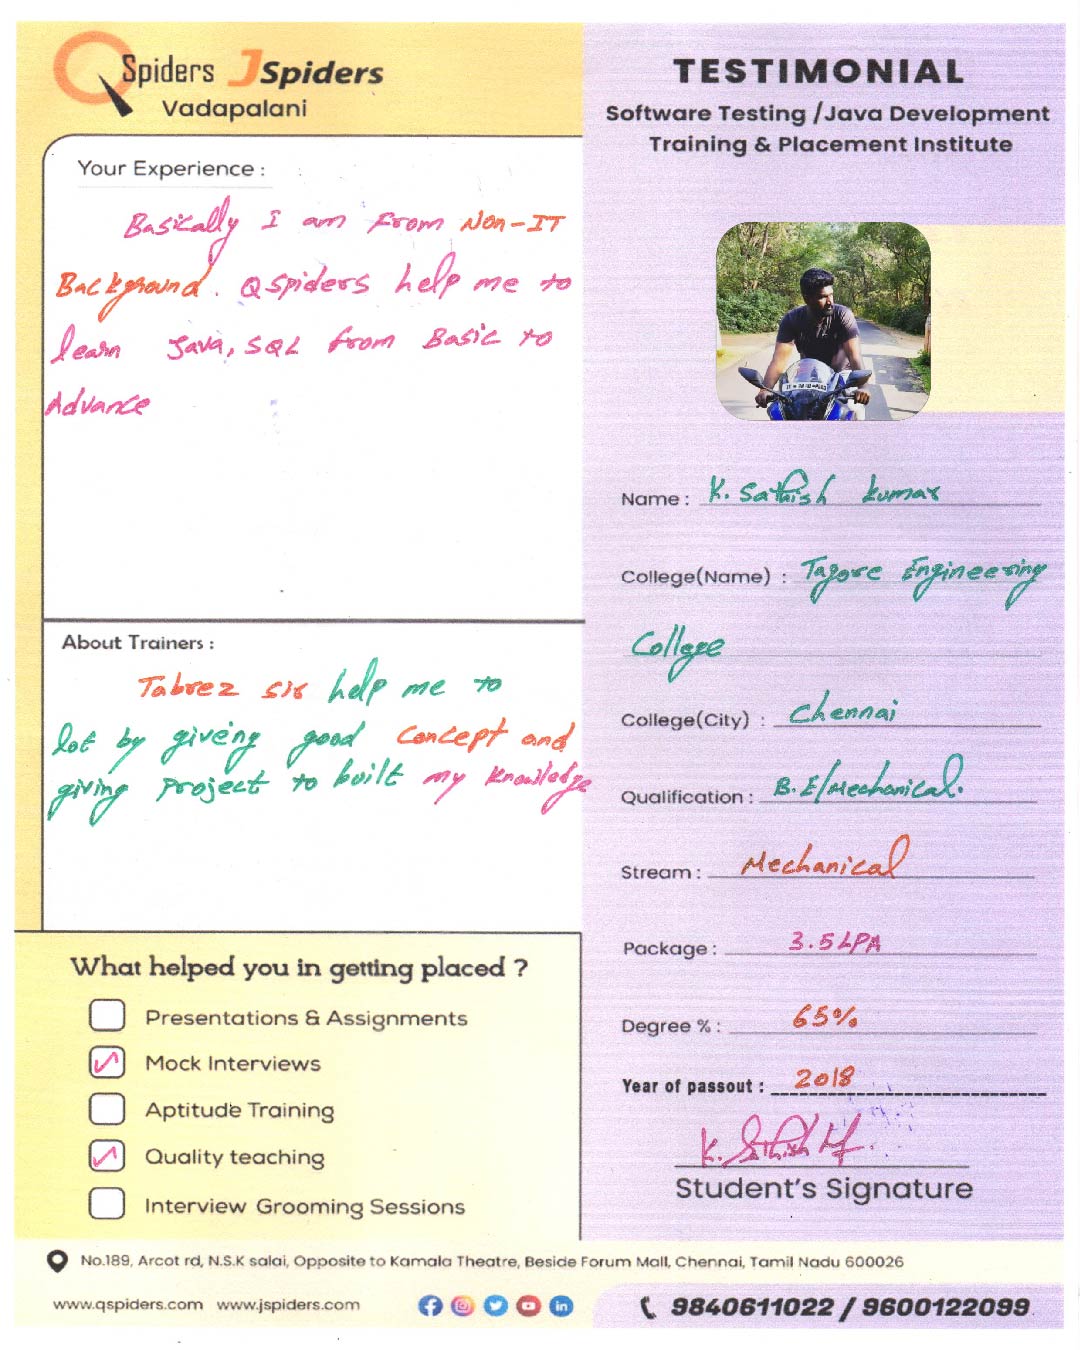 QSpiders JSpiders
Vadapalani
Your Experience :
Basically I am from Non-IT
Background. QSpiders help me to
learn Java, SQL from Basic to
Advance
About Trainers :
Tabrez sir help me to
lot by giveing good Concept and
giving Project to built my knowledge
What helped you in getting placed ?
Presentations & Assignments
Mock Interviews
Aptitude Training
Quality teaching
Interview Grooming Sessions
TESTIMONIAL
Software Testing /Java Development
Training & Placement Institute
Name : K. Sathish kumar
College(Name) : Tagore Engineering
College
College(City) : Chennai
Qualification : B.E/Mechanical.
Stream : Mechanical
Package : 3.5 LPA
Degree % : 65%
Year of passout : 2018
K. Sathish
Student's Signature
No.189, Arcot rd, N.S.K salai, Opposite to Kamala Theatre, Beside Forum Mall, Chennai, Tamil Nadu 600026
www.qspiders.com www.jspiders.com
9840611022 / 9600122099